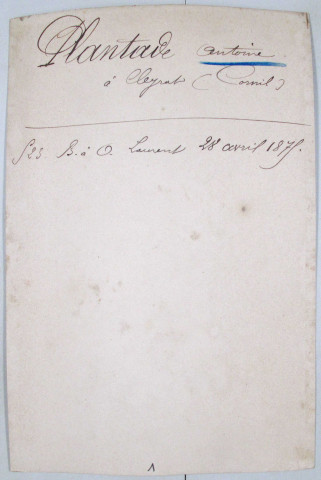 Plantade antoine.
à Cleyrat (Cornil)
523 B. à O. Laurent 28 avril 1875.
1